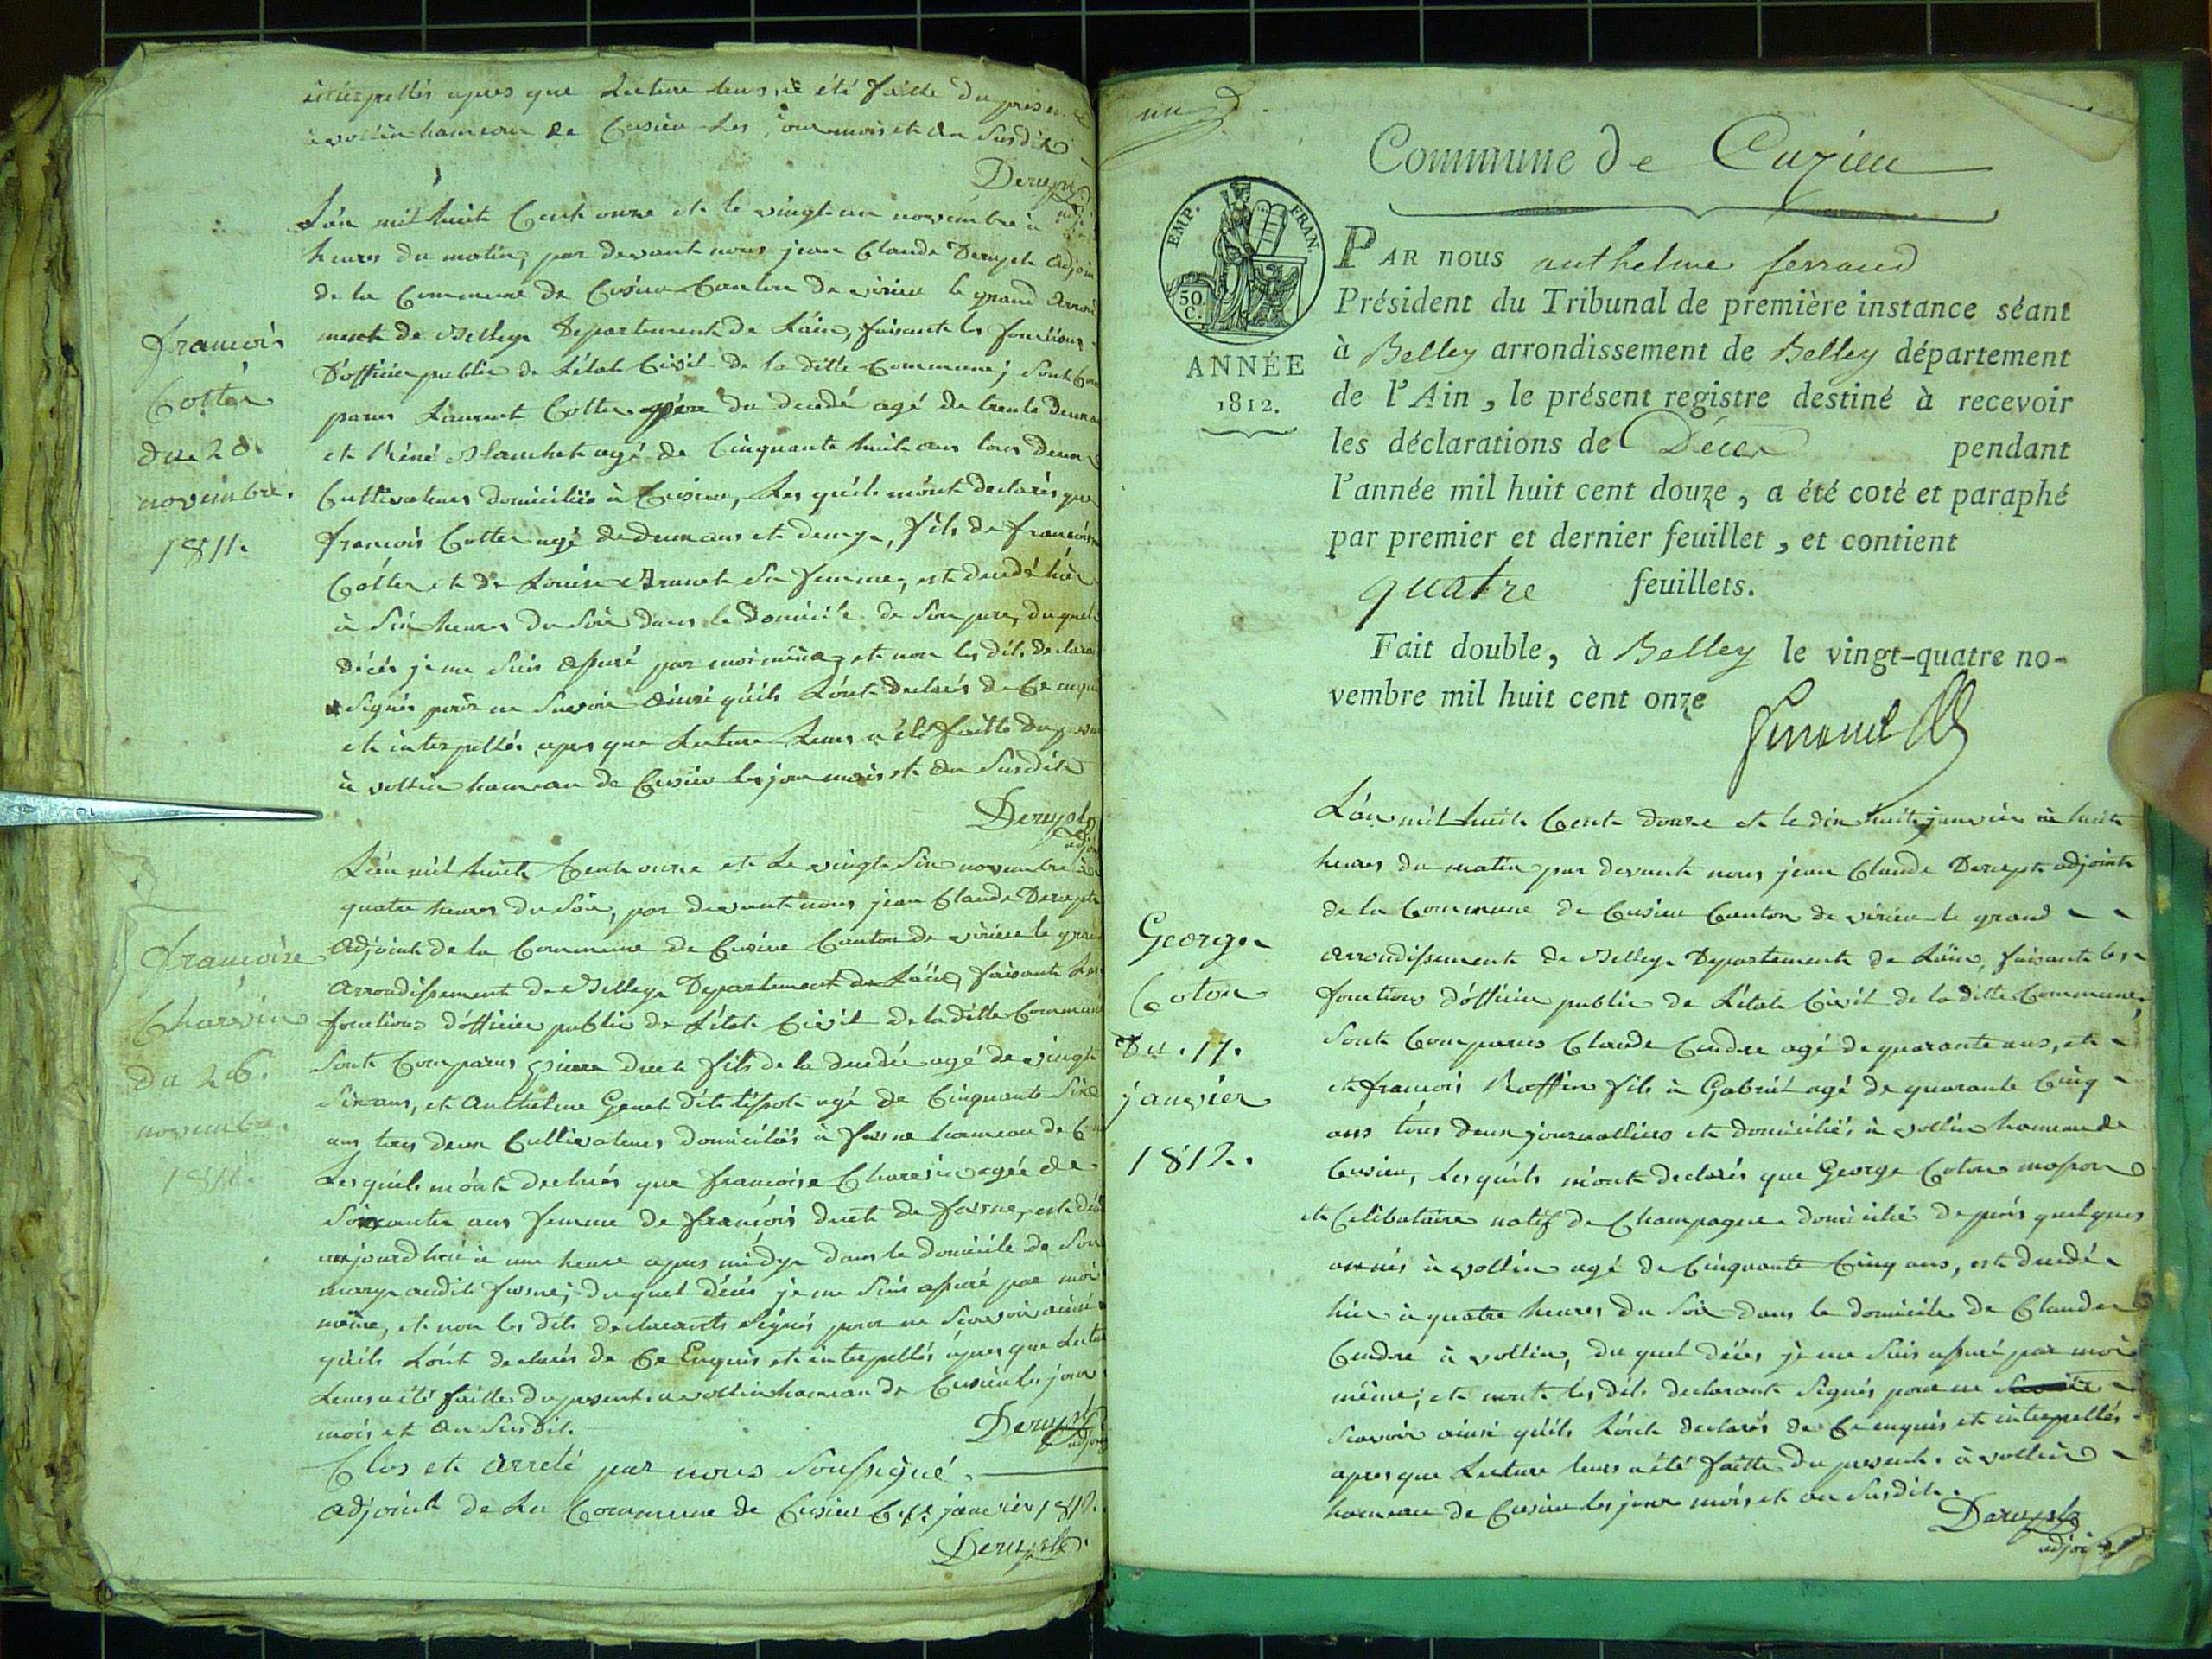 interpellés apres que Lecture leurs a été faitte du présent
à vollin hameau de Cusieu les jour mois et an Susdit
Derupt
L'an mil huit Cent onze et le vingt un novembre à
heures du matin, par devant nous jean Claude Derupt adjoin
de la Commune de Cusieu Canton de virieu le grand Arrond
ment de Belley Departement de L'ain, faisant les fonctions
D'officier public de L'état Civil de la ditte Commune; Sont Com
parus Laurent Cotter père du decedé agé de trente deux a
et Réné Blanchet agé de Cinquante huit ans tous deux
Cultivateurs domiciliés à Cusieu, Les quéls m'ont declarés que
françois Cotter agé de deux ans et demy, fils de françois
Cotter et de Louise Brunet Sa femme, est decedé hier
à Six heures du Soir dans le Domicile de Son pere, du quel
décés je me Suis assuré par moi même, et non les dits declara
Signés pour ne Savoir ainsi qu'ils L'ont declarés de Ce enqui
et interpellés apres que Lecture Leurs a été faitte du présen
à vollin hameau de Cusieu les jour mois et an Susdit
Derupt
adjoi
françois
Cotter
du 20.
novembre.
1811.
L'an mil huit Cent onze et Le vingt Six novembre à
quatre heures du Soir, par devant nous jean Claude Derupt
Adjoint de la Commune de Cusieu Canton de virieu le gran
Arrondissement de Belley Departement de L'ain, faisant Les
fonctions d'officier public de L'état Civil de la ditte Commune
Sont Comparus pierre duet fils de la decedée agé de vingt
Six ans, et Anthelme Genet dit tissot agé de Cinquante Six
ans tous deux Cultivateurs domiciliés à fosne hameau de C
Les quéls m'ont declarés que françoise Charvin agée de
Soixante ans femme de françois duet de fosne, est déc
aujourdhui à une heure apres midy dans le domicile de Son
mary audit fosne; du quel décés je me Suis assuré par moi
même, et non les dits declarants Signés pour ne Scavoir ainsi
qu'ils L'ont declarés de Ce Enquis et interpellés apres que Lectu
Leurs a été faitte du présent. à vollin hameau de Cusieu les jour
mois et an Susdit.
Derupt
adjoi
françoise
Charvin
du 26.
novembre.
1811.
Clos et Arreté par nous Soussigné
adjoint de La Commune de Cusieu Ce 1er janvier 1812.
Derupt
un
Commune de Cuzieu
EMP. FRAN.
50 C.
ANNÉE
1812.
PAR nous anthelme ferrand
Président du Tribunal de première instance séant
à Belley arrondissement de Belley département
de l'Ain, le présent registre destiné à recevoir
les déclarations de Décès pendant
l'année mil huit cent douze, a été coté et paraphé
par premier et dernier feuillet, et contient
quatre feuillets.
Fait double, à Belley le vingt-quatre no-
vembre mil huit cent onze
Ferrand
George
Coton
Du. 17.
janvier
1812.
L'an mil huit Cent douze et le dix huit janvier à huit
heures du matin par devant nous jean Claude Derupt adjoint
de la Commune de Cusieu Canton de virieu le grand
Arrondissement de Belley Departement de L'ain, faisant les
fonctions d'officier public de L'état Civil de la ditte Commune,
Sont Comparus Claude Cendre agé de quarante ans, et
et françois Roffin fils à Gabriel agé de quarante Cinq
ans tous deux journalliers et domiciliés à vollin hameau de
Cusieu, Les quéls m'ont declarés que George Coton masson
et Celibataire natif de Champagne domicilié depuis quelques
années à vollin agé de Cinquante Cinq ans, est decedé
hier à quatre heures du Soir dans le domicile de Claude
Cendre à vollin, du quel décés je me Suis assuré par moi
même; et n'ont les dits declarants Signés pour ne
Scavoir ainsi qu'ils L'ont declarés de Ce enquis et interpellés
apres que Lecture leurs a été faitte du présent. à vollin
hameau de Cusieu les jour mois et an Susdit.
Derupt
adjoi